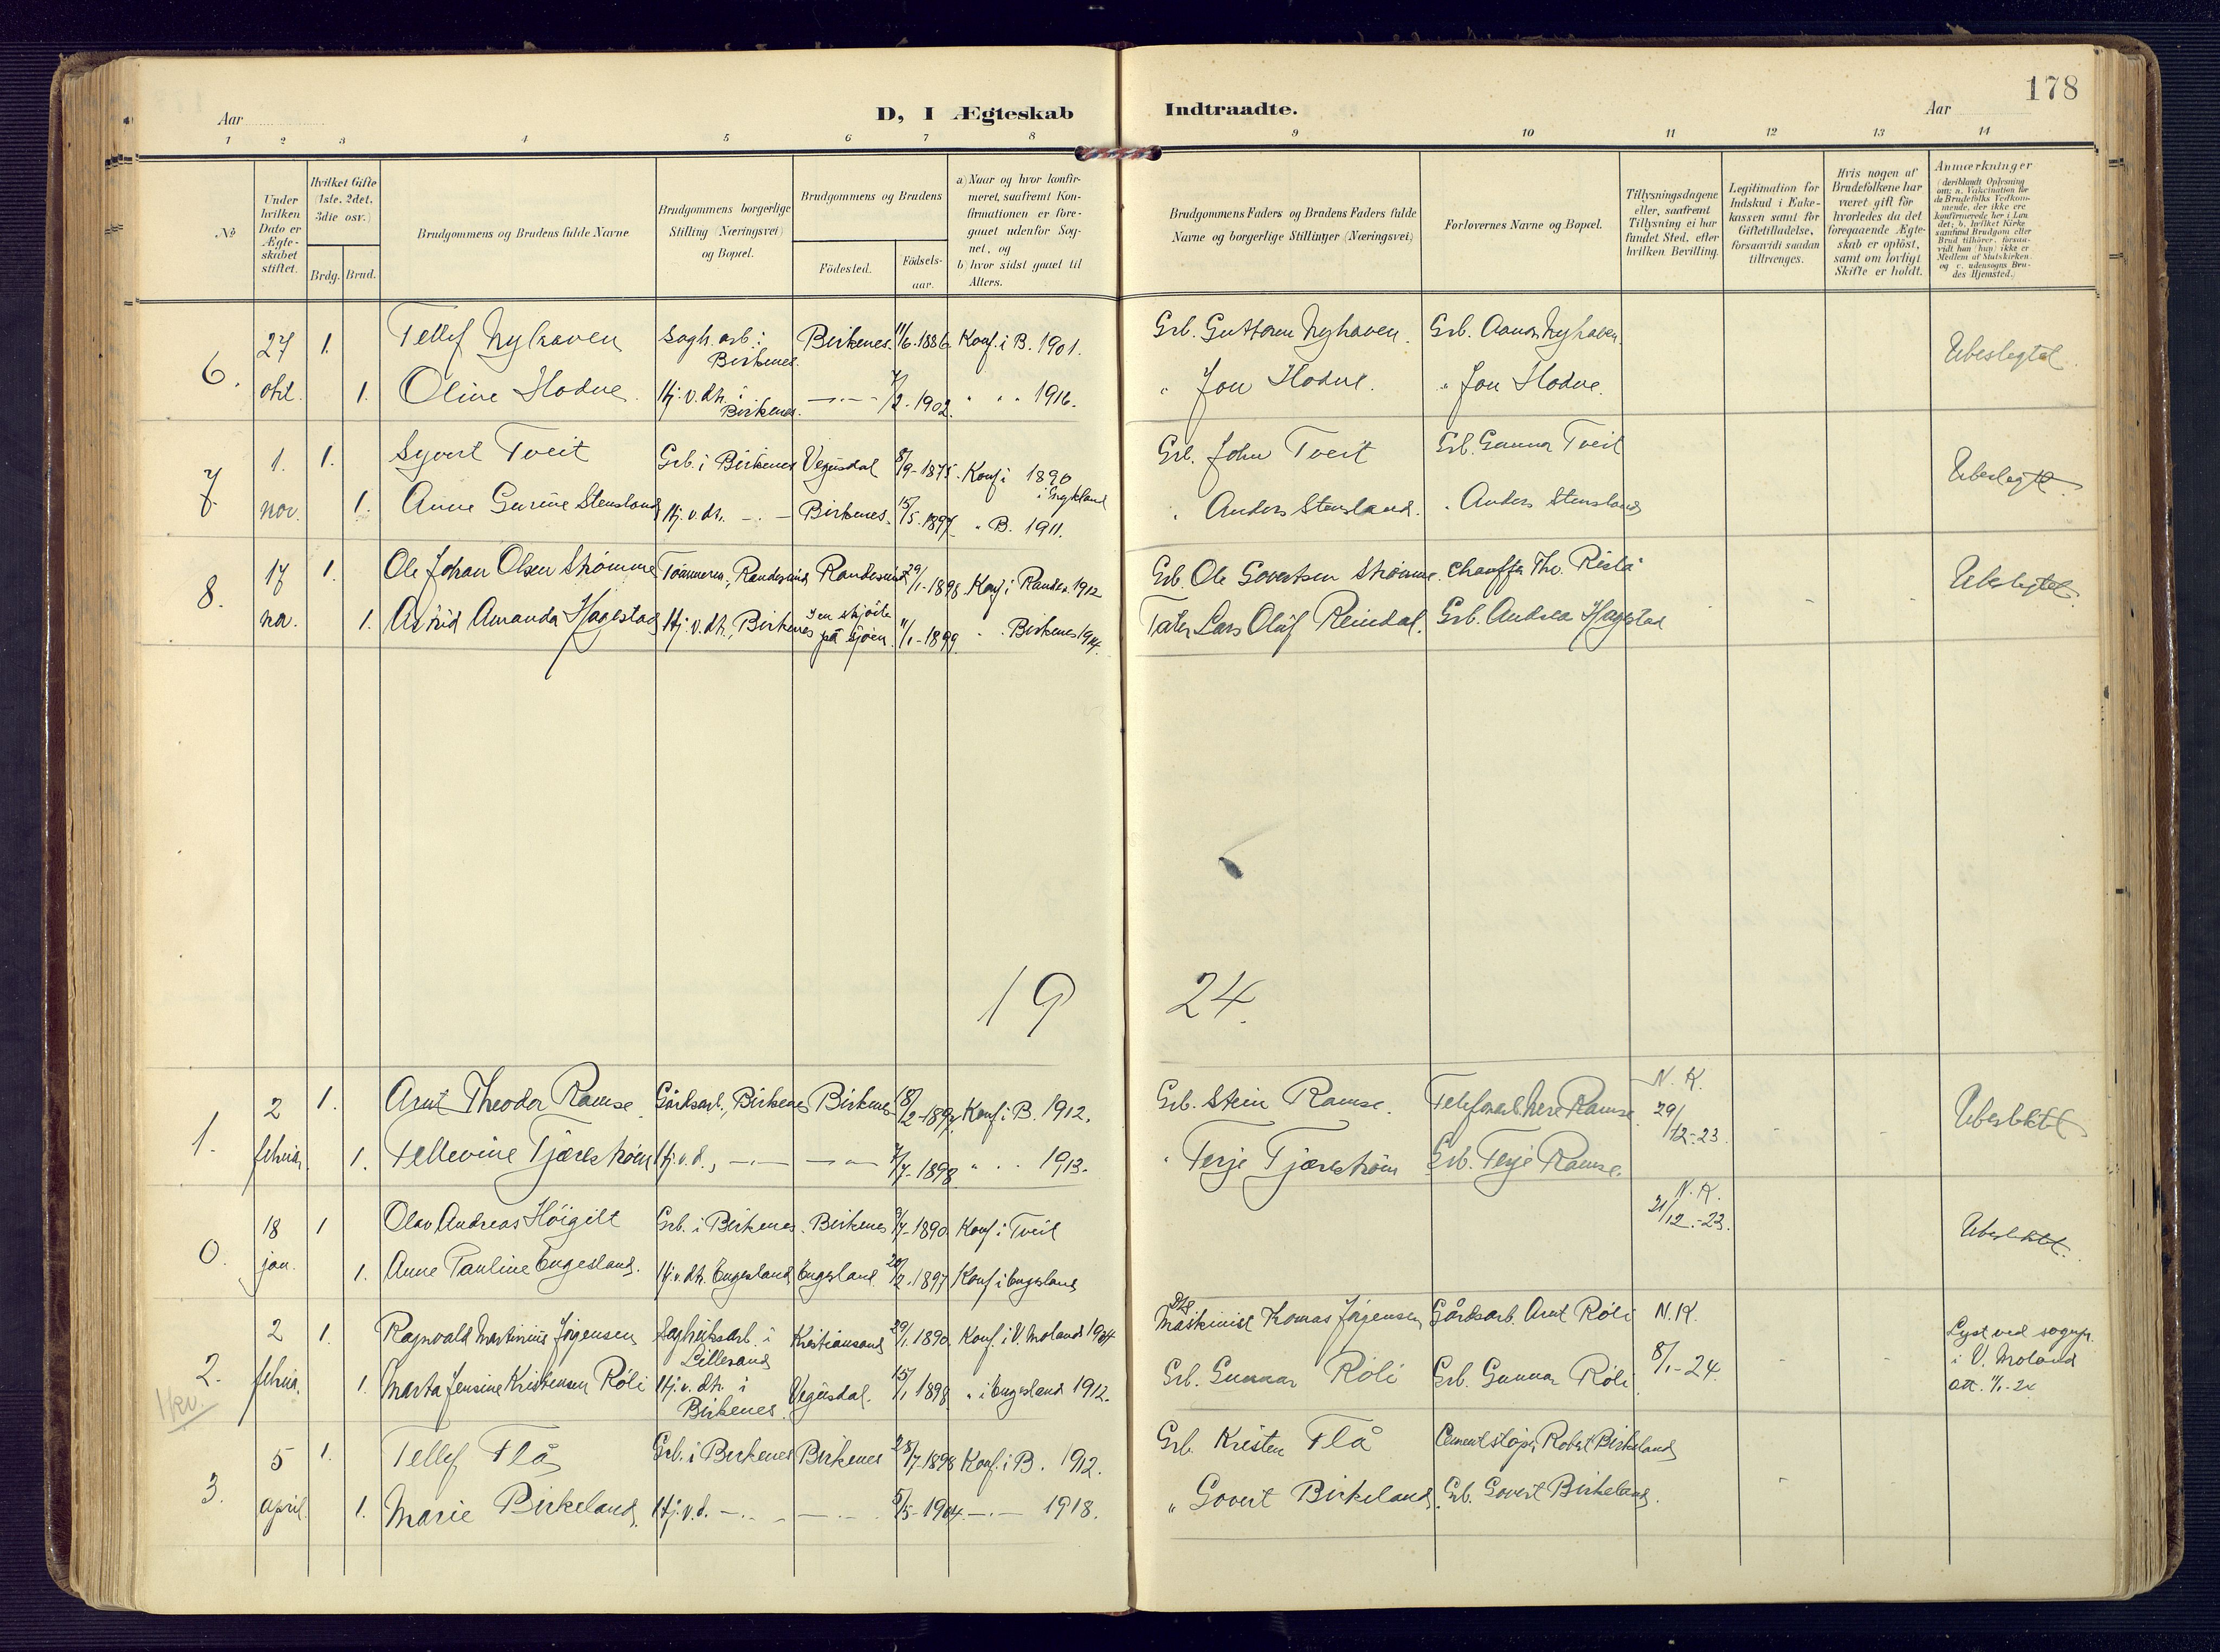 178
Aar
D, I Ægteskab Indtraadte.
Aar
1 2 3 4 5 6 7 8 9 10 11 12 13 14
No
Under hvilken Dato er Ægteskabet stiftet.
Hvilket Gifte (1ste, 2det, 3die osv.)
Brdg. Brud.
Brudgommens og Brudens fulde Navne
Brudgommens borgerlige Stilling (Næringsvei) og Bopæl.
Brudgommens og Brudens
Födested.
Födsels-aar.
a) Naar og hvor konfirmeret, saafremt Konfirmationen er foregaaet udenfor Sognet, og
b) hvor sidst gaaet til Alters.
Brudgommens Faders og Brudens Faders fulde Navne og borgerlige Stillinger (Næringsvei)
Forlovernes Navne og Bopæl.
Tillysningsdagene eller, saafremt Tillysning ei har fundet Sted, efter hvilken Bevilling.
Legitimation for Indskud i Enkekassen samt for Giftetilladelse, forsaavidt saadan tiltrænges.
Hvis nogen af Brudefolkene har været gift för hvorledes da det foregaaende Ægteskab er oplöst, samt om lovligt Skifte er holdt.
Anmærkninger
(deriblandt Oplysning om: a. Vakcination for de Brudefolks Vedkommende, der ikke ere konfirmerede her i Landet; b. hvilket Kirkesamfund Brudgom eller Brud tilhörer, forsaavidt han (hun) ikke er Medlem af Statskirken. og c. udensogns Brudes Hjemsted.)
6. 27 1. Tellef Nyhaven Sagh. arb. i Birkenes. Birkenes. 11/6.1886. Konf. i B. 1901. Grb. Guttorm Nyhaven. Grb. Nyhaven. Ubeslegtet.
okt. 1. Oline Hodne. Hj. v. dh. i Birkenes. —.— 7/2.1902. " " " 1916. " Jon Hodne. " Jon Hodne.
7. 1. 1. Syvert Tveit Grb. i Birkenes Vegusdal 8/9-1875. Konf. i 1890 Grb. John Tveit Grb. Gunnar Tveit Ubeslegtet.
nov. 1. Anne Gurine Stensland Hj. v. dh. —.— Birkenes. 15/5.1897 " B. 1911. " Anders Stensland. " Anders Stensland
8. 17 1. Ole Johan Olsen Strømme Tømmerm., Randesund Randesund 29/1-1898 Konf. i Randes. 1912 Grb. Ole Govertsen Strømme. Chauffør Th. Rislå Ubeslegtet.
nov. 1. Astrid Amanda Hagestad Hj. v. dh., Birkenes I en skjøite på sjøen. 11/1-1899. " Birkenes 1914. Tater Lars Olaf Reindal. Grb. Andrea Hagestad
19 24.
1. 2 1. Arnt Theodor Ramse Gårdsarb., Birkenes Birkenes 18/2-1897. Konf. i B. 1912. Grb. Stein Ramse. Ramse. N. K. 29/12-23. Ubeslektet
februar. 1. Tellevine Tjærestrøm Hj. v. d., —.— —.— 7/7-1898 " " " 1913. " Terje Tjærestrøm Grb. Terje Ramse.
0. 18 1 Olav Andreas Höigilt Grb. i Birkenes. Birkenes 3/7-1890. Konf. i Tveit N. K. 21/12.-23. Ubeslektet.
jan. 1. Anne Pauline Engesland. Hj. v. dh. Engesland Engesland 20/2.1897 Konf. i Engesland
2. 2 1. Ragnvald Martinius Jørgensen Sagbruksarb. i Lillesand Kristiansand 29/1.1890. Konf. i V. Moland 1904 Maskinist Tomas Jørgensen Gårdsarb. Arnt Röli N. K. 8/1-24. Lyst ved sogepr. i V. Moland
februar. 1. Marta Jensine Kristensen Röli Hj. v. dh. i Birkenes. Vegusdal. 15/1 1898 " i Engesland 1912. Grb. Gunnar Röli Grb. Gunnar Röli att. 11/1-24
1 kv.
3. 5 1. Tellef Flå Grb. i Birkenes Birkenes 25/7-1898 Konf. i B. 1912. Grb. Kristen Flå Cementstöper Robert Birkeland
april. 1. Marie Birkeland. Hj. v. d. —.— —.— 5/5-1904. —.— 1918. " Govert Birkeland. Grb. Govert Birkeland.